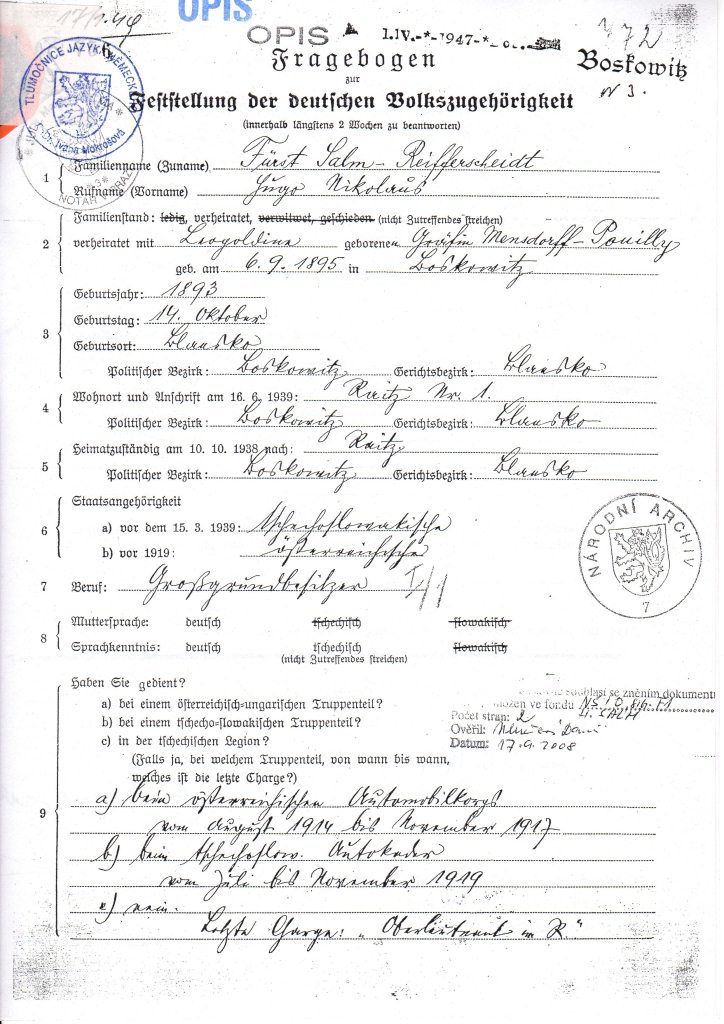 17/1.49
OPIS
OPIS
I.IV.-*-1947-*
472
Fragebogen
Boskowitz
zur
N 3.
Feststellung der deutschen Volkszugehörigkeit
(innerhalb längstens 2 Wochen zu beantworten)
TLUMOČNICE JAZYKA NĚMECKÉHO
Dr. Ivana Mokrošová
NOTÁŘ
1 Familienname (Zuname) Fürst Salm-Reifferscheidt
Rufname (Vorname) Hugo Nikolaus
Familienstand: ledig, verheiratet, verwitwet, geschieden (nicht Zutreffendes streichen)
2 verheiratet mit Leopoldine geborenen Gräfin Mensdorff-Pouilly
geb. am 6.9.1895 in Boskowitz
Geburtsjahr: 1893
Geburtstag: 14. Oktober
3
Geburtsort: Blansko
Politischer Bezirk: Boskowitz Gerichtsbezirk: Blansko
4 Wohnort und Anschrift am 16. 6. 1939: Raitz Nr. 1.
Politischer Bezirk: Boskowitz Gerichtsbezirk: Blansko
5 Heimatzuständig am 10. 10. 1938 nach: Raitz
Politischer Bezirk: Boskowitz Gerichtsbezirk: Blansko
Staatsangehörigkeit
6 a) vor dem 15. 3. 1939: tschechoslowakische
b) vor 1919: österreichische
NÁRODNÍ ARCHIV
7
7 Beruf: Großgrundbesitzer I/1
8 Muttersprache: deutsch tschechisch slowakisch
Sprachkenntnis: deutsch tschechisch slowakisch
(nicht Zutreffendes streichen)
Haben Sie gedient?
a) bei einem österreichisch-ungarischen Truppenteil?
b) bei einem tschecho-slowakischen Truppenteil?
c) in der tschechischen Legion?
(Falls ja, bei welchem Truppenteil, von wann bis wann,
welches ist die letzte Charge?)
souhlasí se zněním dokumentu
uložen ve fondu
Počet stran: 2
Ověřil:
Datum: 17.9.2008
9 a) beim österreichischen Automobilkorps
vom August 1914 bis November 1917
b) beim tschechoslow. Autokader
vom Juli bis November 1919
c) nein.
Letzte Charge: „Oberleutnant i. R."